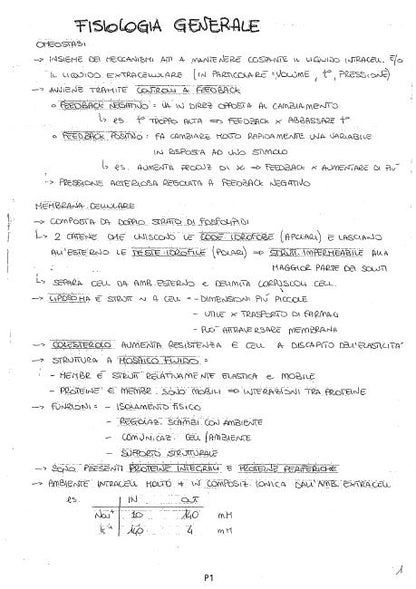 FISIOLOGIA GENERALE
OMEOSTASI
→ INSIEME DEI MECCANISMI ATTI A MANTENERE COSTANTE IL LIQUIDO INTRACELL. E/O
IL LIQUIDO EXTRACELLULARE (IN PARTICOLARE: VOLUME, t°, PRESSIONE)
→ AVVIENE TRAMITE CONTROLLI A FEEDBACK
o FEEDBACK NEGATIVO: VA IN DIREZ OPPOSTA AL CAMBIAMENTO
↳ es. t° TROPPO ALTA ⇒ FEEDBACK X ABBASSARE t°
o FEEDBACK POSITIVO: FA CAMBIARE MOLTO RAPIDAMENTE UNA VARIABILE
IN RISPOSTA AD UNO STIMOLO
↳ es. AUMENTA PRODUZ DI X ⇒ FEEDBACK X AUMENTARE DI PIÙ
→ PRESSIONE ARTERIOSA REGOLATA A FEEDBACK NEGATIVO
MEMBRANA CELLULARE
→ COMPOSTA DA DOPPIO STRATO DI FOSFOLIPIDI
↳ 2 CATENE CHE UNISCONO LE CODE IDROFOBE (APOLARI) E LASCIANO
ALL'ESTERNO LE TESTE IDROFILE (POLARI) ⇒ STRUTT IMPERMEABILE ALLA
MAGGIOR PARTE DEI SOLUTI
↳ SEPARA CELL DA AMB ESTERNO e DELIMITA CORPUSCOLI CELL.
→ LIPOSOMA È STRUTT A CELL = - DIMENSIONI PIÙ PICCOLE
- UTILE X TRASPORTO DI FARMACI
- PUÒ ATTRAVERSARE MEMBRANA
→ COLESTEROLO AUMENTA RESISTENZA E CELL A DISCAPITO DELL'ELASTICITÀ
→ STRUTTURA A MOSAICO FLUIDO =
- MEMBR È STRUTT RELATIVAMENTE ELASTICA e MOBILE
- PROTEINE E MEMBR. SONO MOBILI ⇒ INTERAZIONI TRA PROTEINE
→ FUNZIONI: - ISOLAMENTO FISICO
- REGOLAZ. SCAMBI CON AMBIENTE
- COMUNICAZ. CELL/AMBIENTE
- SUPPORTO STRUTTURALE
→ SONO PRESENTI PROTEINE INTEGRALI E PROTEINE PERIFERICHE
→ AMBIENTE INTRACELL MOLTO ≠ IN COMPOSIZ. IONICA DALL'AMB. EXTRACELL
es. IN OUT
Na⁺ 10 140 mM
K⁺ 140 4 mM
P1
1